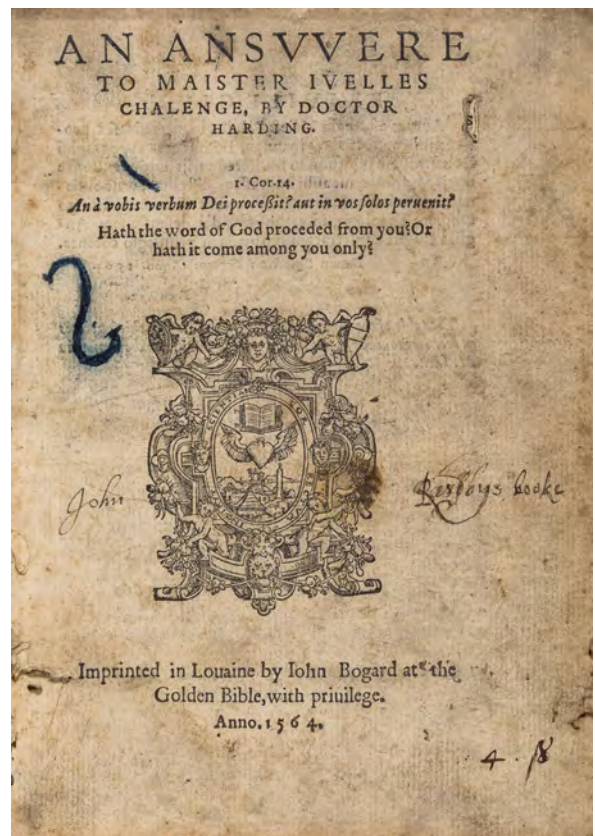 AN ANSVVERE
TO MAISTER IVELLES
CHALENGE, BY DOCTOR
HARDING.
1. Cor. 14.
An à vobis verbum Dei proceßit? aut in vos solos peruenit?
Hath the word of God proceded from you? Or
hath it come among you only?
John booke
Imprinted in Louaine by Iohn Bogard at the
Golden Bible, with priuilege.
Anno. 1564.
4.